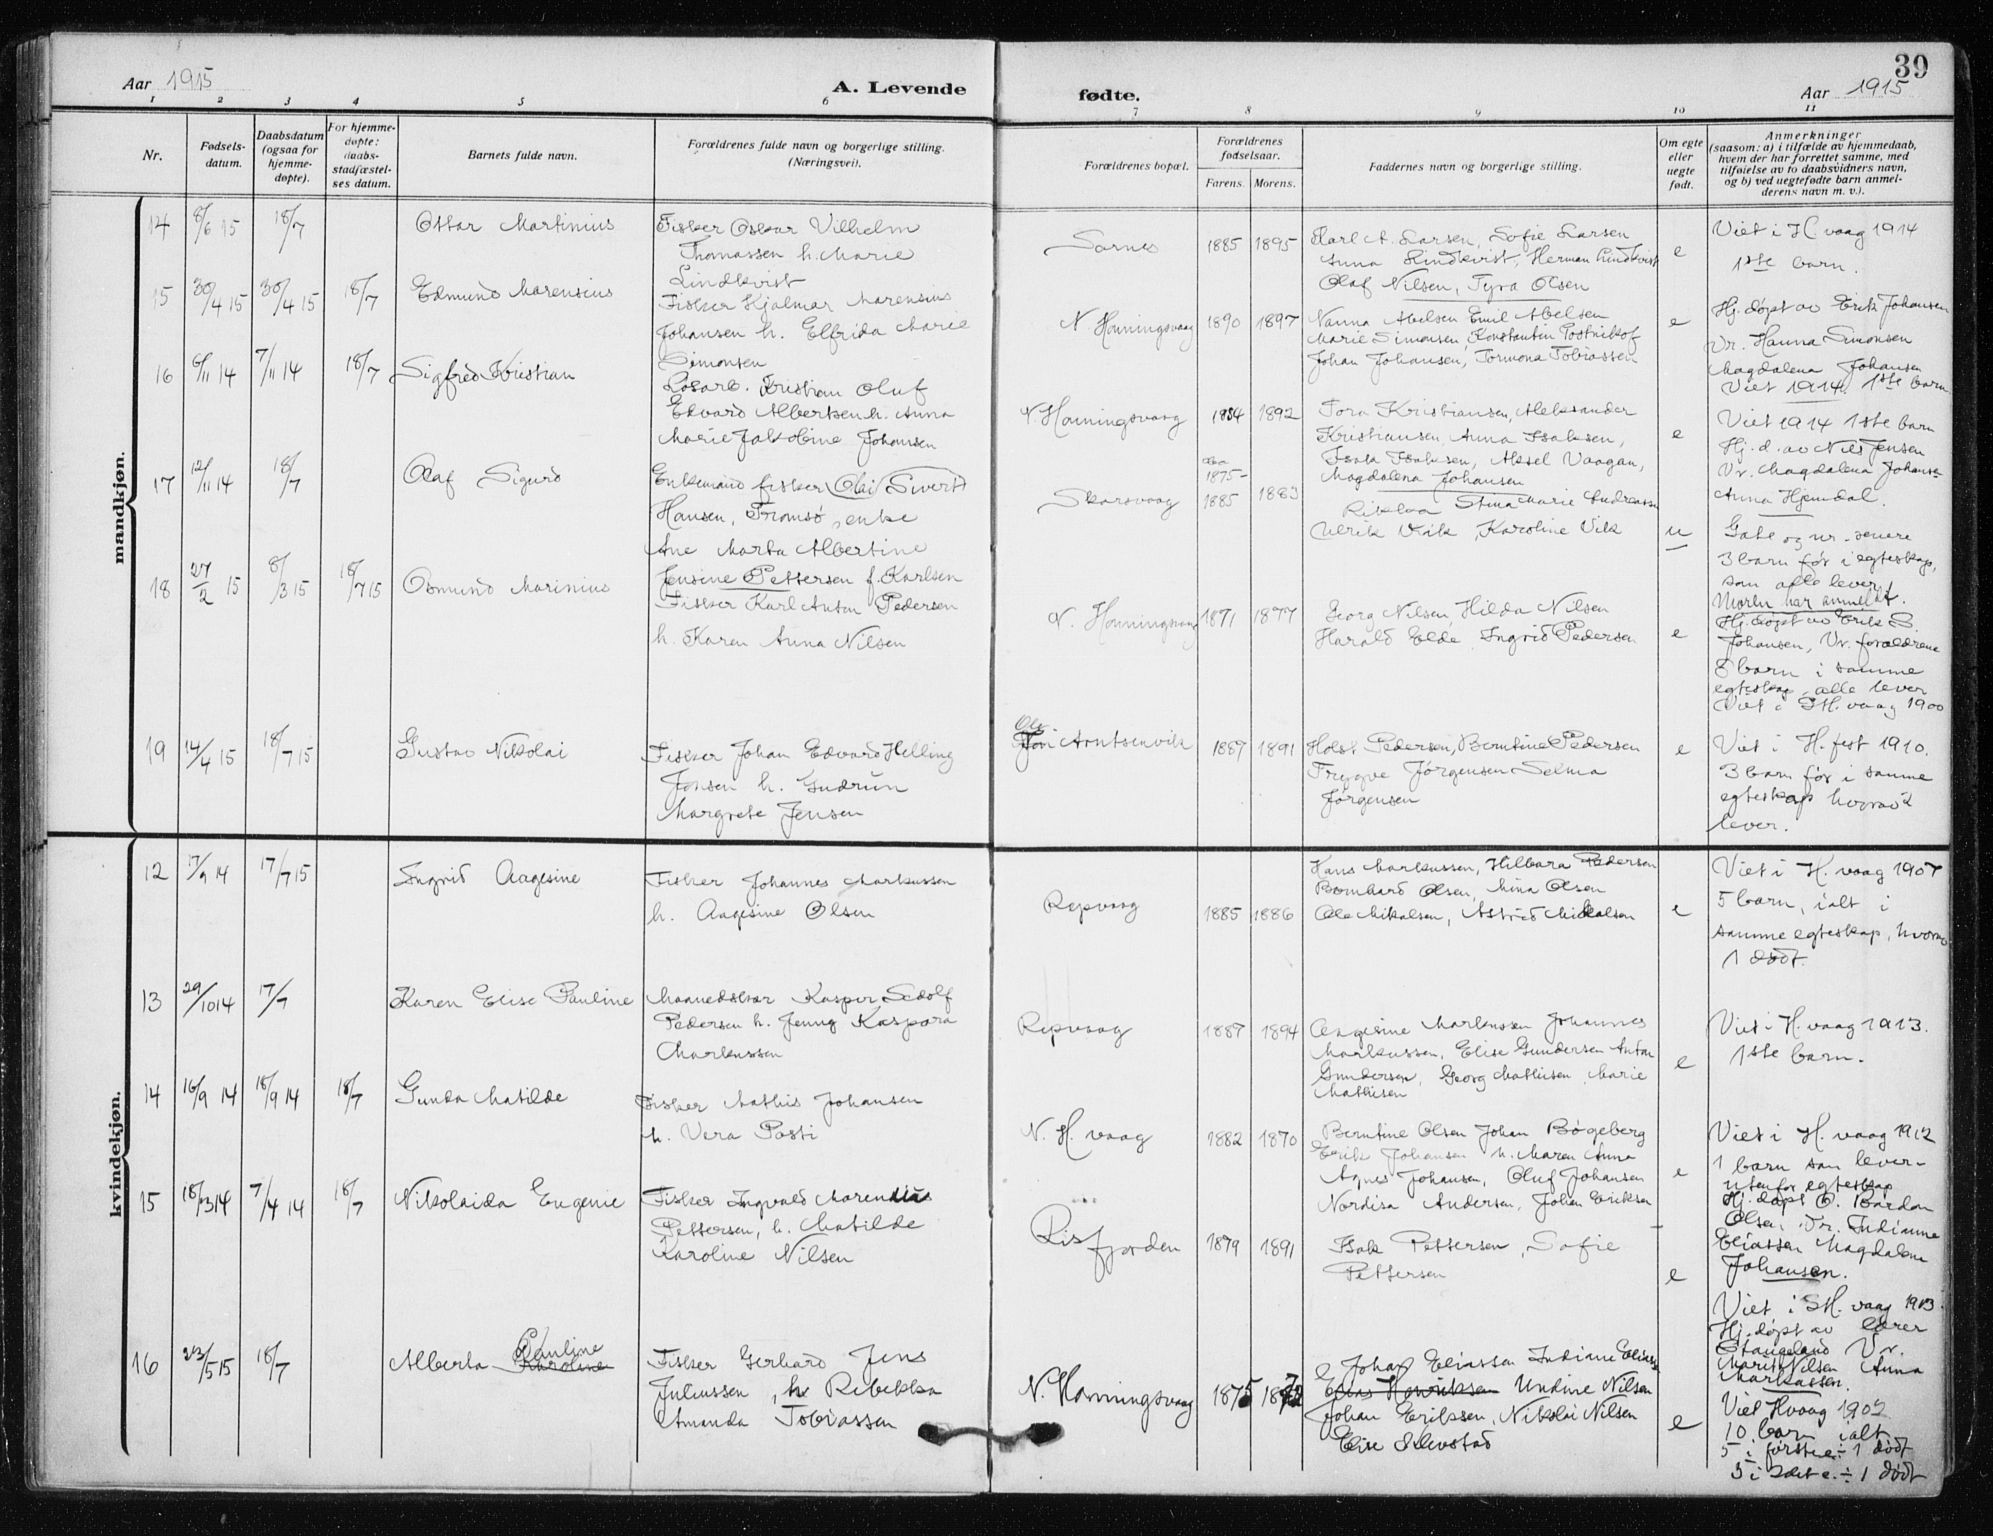 39
Aar 1915
A. Levende
fødte.
Aar 1915
1 2 3 4 5 6 7 8 9 10 11
Nr.
Fødsels-
datum.
Daabsdatum
(ogsaa for
hjemme-
døpte).
For hjemme-
døpte:
daabs-
stadfæstel-
ses datum.
Barnets fulde navn.
Forældrenes fulde navn og borgerlige stilling.
(Næringsvei).
Forældrenes bopæl.
Forældrenes
fødselsaar.
Farens. Morens.
Faddernes navn og borgerlige stilling.
Om egte
eller
uegte
født.
Anmerkninger
(saasom: a) i tilfælde av hjemmedaab,
hvem der har forrettet samme, med
tilføielse av to daabsvidners navn,
og b) ved uegtefødte barn anmel-
derens navn m. v.).
mandkjøn.
14 8/6 15 18/7
Ottar Martinius
Fisker Oskar Vilhelm
Thomassen h. Marie
Lindkvist
Sarnes 1885 1895
Karl A. Larsen, Sofie Larsen
Anna Lindkvist, Herman Lindkvist
Olaf Nilsen, Tyra Olsen
e
Viet i H vaag 1914
1ste barn.
15 30/4 15 30/4 15 18/7
Edmund Marensius
Fisker Hjalmar Marensius
Johansen h. Elfrida Marie
Simonsen
N. Honningsvaag 1890 1897
Nanna Abelsen Emil Abelsen
Marie Simonsen, Konstantin Postnikof
Johan Johansen, Tormona Tobiassen
e
Hj. døpt av Erik Johansen
Vr. Hanna Simonsen
Magdalena Johansen
Viet 1914. 1ste barn
16 6/11 14 7/11 14 18/7
Sigfred Kristian
Losarb. Kristian Oluf
Edvard Albertsen h. Anna
Marie Jakobine Johansen
N. Honningsvaag 1884 1892
Tora Kristiansen, Aleksander
Kristiansen, Anna Isaksen,
Isak Isaksen, Aksel Vaagan,
Magdalena Johansen
e
Viet 1914 1ste barn
Hj. d. av Nils Jensen
Vr. Magdalena Johansen
Anna Hjemdal.
17 12/11 14 18/7
Olaf Sigurd
Enkemand fisker (Olai) Sivert
Hansen, Tromsø, enke
Ane Marta Albertine
Jensine Pettersen f. Karlsen
Skarsvaag 1875-
1885 1883
Stina Marie Andreassen
Ulrik Vik, Karoline Vik
u
3 barn før i egteskap,
som alle lever.
Moren har anmeldt.
18 27/2 15 8/3 15 18/7 15
Osmund Marinius
Fisker Karl Anton Pedersen
h. Karen Anna Nilsen
N. Honningsvaag 1871 1877
Georg Nilsen, Hilda Nilsen
Harald Elde, Ingrid Pedersen
e
Hj. døpt av Erik S.
Johansen, Vr. forældrene
8 barn i samme
egteskap, alle lever
Viet i H. vaag 1900
19 14/4 15 18/7 15
Gustav Nikolai
Fisker Johan Edvard Helling
Jensen h. Gudrun
Margrete Jensen
Arntsenvik 1887 1891
Holst Pedersen, Berntine Pedersen
Trygve Jørgensen Selma
Jørgensen
e
Viet i H. fest 1910.
3 barn før i samme
egteskap hvorav 2
lever.
kvindekjøn.
12 17/9 14 17/7 15
Ingrid Aagesine
Fisker Johannes Markussen
h. Aagesine Olsen
Repvaag 1885 1886
Hans Markussen, Hilbora Pedersen
Bernhard Olsen, Mina Olsen
Ole Mikalsen, Astrid Mikkalsen
e
Viet i H. vaag 1907
5 barn, ialt i
samme egteskap, hvorav
1 dødt.
13 29/10 14 17/7
Karen Elise Pauline
Maanedskar Kasper Sedolf
Pedersen h. Jenny Kaspara
Markussen
Repvaag 1887 1894
Aagesine Markussen Johannes
Markussen, Elise Gundersen Anton
Gundersen, Georg Mathisen Marie
Mathisen
e
Viet i H. vaag 1913.
1ste barn.
14 16/9 14 18/9 14 18/7
Gunda Matilde
Fisker Mathis Johansen
h. Vera Posti
N. H. vaag 1882 1870
Berntine Olsen Johan Bøgeberg
Erik Johansen h. Maren Anna
Agnes Johansen, Oluf Johansen
Nordisa Andersen, Johan Eriksen
e
Viet i H. vaag 1912
1 barn som lever-
utenfor egteskap
15 18/3 14 7/4 14 18/7
Nikolaida Eugenie
Fisker Ingvald Marendius
Pettersen, h. Matilde
Karoline Nilsen
Risfjorden 1879 1891
Isak Pettersen, Sofie
Pettersen
e
Hj. døpt O. Bardon
Olsen, Vr. Indianna
Eliassen Magdalena
Johansen.
Viet i H. vaag 1913.
16 23/5 15 18/7
Alberta Pauline
Karoline
Fisker Gerhard Jens
Juliussen, h. Rebekka
Amanda Tobiassen
N. Honningsvaag 1875
Johan Eliassen Indiane Eliassen
Elias Henriksen Undine Nilsen
Johan Eriksen, Nikolai Nilsen
Elise Silevstad
e
Hj. døpt av lærer
Stangeland Vr.
Marit Nilsen Anna
Markussen.
Viet Hvaag 1902
10 barn ialt
5 i første e. ÷ 1 dødt
5 i 2det e. ÷ 1 dødt